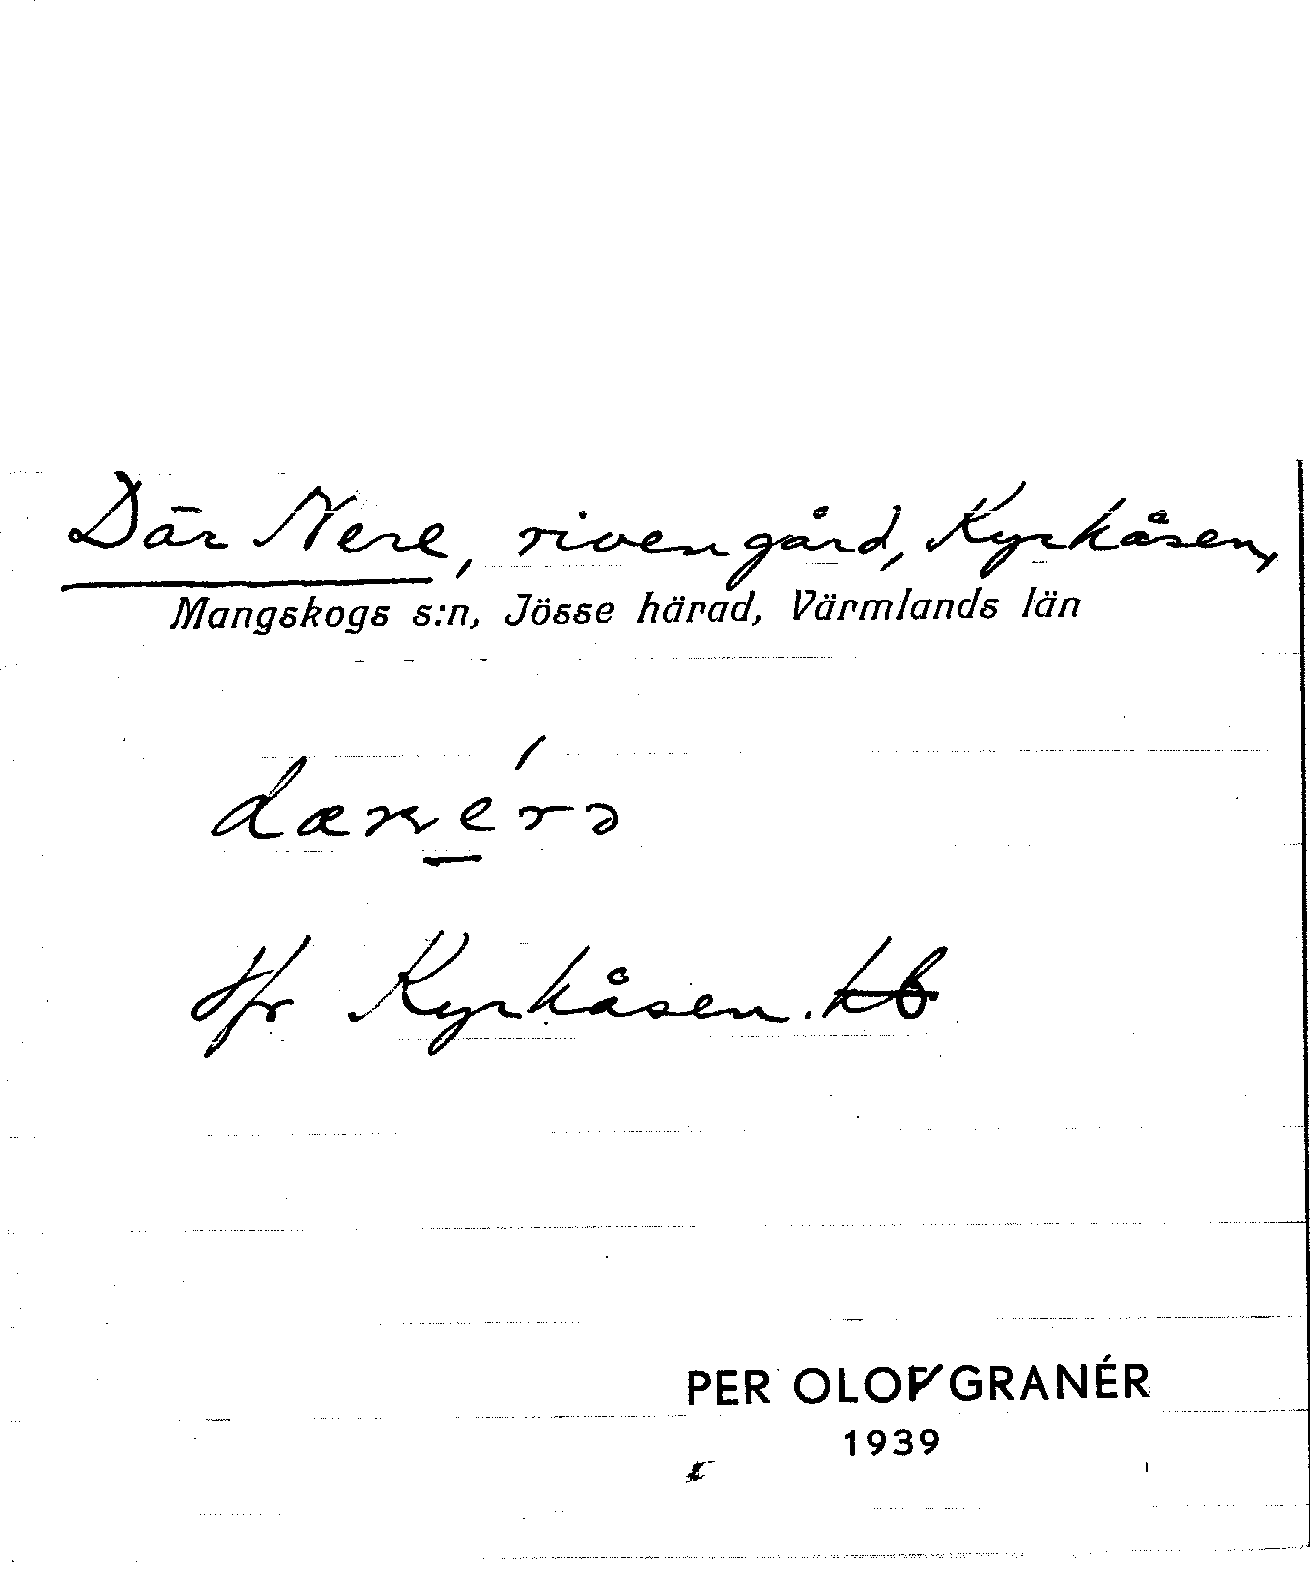 Där Nere, riven gård, Kyrkåsen,
Mangskogs s:n, Jösse härad, Värmlands län
Kyrkåsen.
PER OLOF GRANÉR
1939